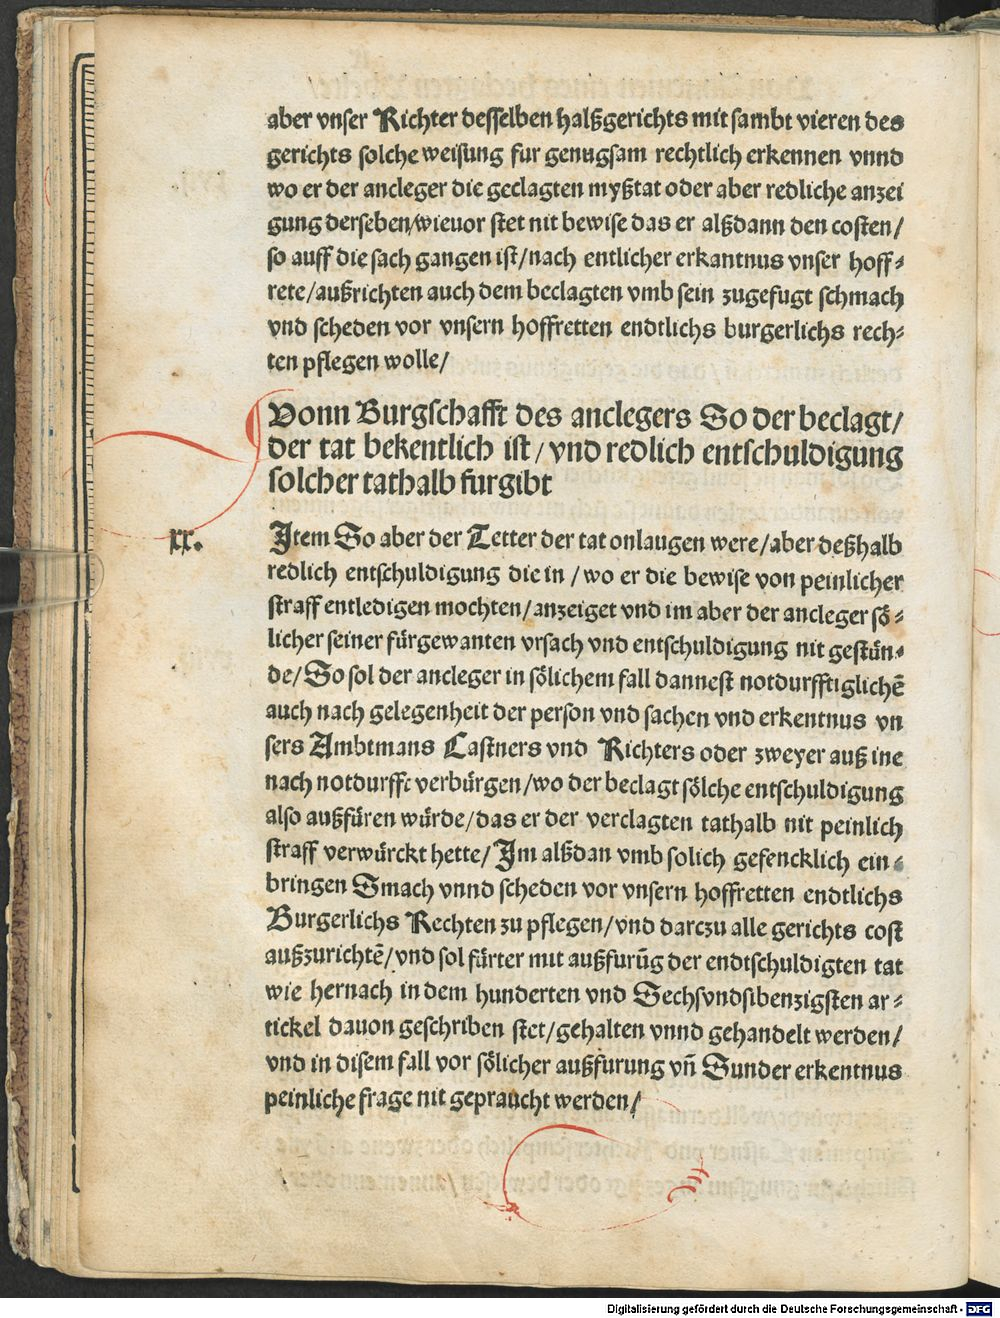 aber vnser Richter desselben halßgerichts mit sambt vieren des
gerichts solche weisung fur genugsam rechtlich erkennen vnnd
wo er der ancleger die geclagten myßtat oder aber redliche anzei
gung derseben/wieuor stet nit bewise das er alßdann den costen/
so auff die sach gangen ist/nach entlicher erkantnus vnser hoff-
rete/außrichten auch dem beclagten vmb sein zugefugt schmach
vnd scheden vor vnsern hoffretten endtlichs burgerlichs rech-
ten pflegen wolle/
Vonn Burgschafft des anclegers So der beclagt/
der tat bekentlich ist/vnd redlich entschuldigung
solcher tathalb furgibt
xx.
Item So aber der Tetter der tat onlaugen were/aber deßhalb
redlich entschuldigung die in/wo er die bewise von peinlicher
straff entledigen mochten/anzeiget vnd im aber der ancleger sö-
licher seiner fürgewanten vrsach vnd entschuldigung nit gestün-
de/So sol der ancleger in sölichem fall dannest notdurfftiglichē
auch nach gelegenheit der person vnd sachen vnd erkentnus vn
sers Ambtmans Castners vnd Richters oder zweyer auß ine
nach notdurfft verbürgen/wo der beclagt sölche entschuldigung
also außfüren würde/das er der verclagten tathalb nit peinlich
straff verwürckt hette/Im alßdan vmb solich gefencklich ein-
bringen Smach vnnd scheden vor vnsern hoffretten endtlichs
Burgerlichs Rechten zu pflegen/vnd darczu alle gerichts cost
außzurichtē/vnd sol fürter mit außfurūg der endtschuldigten tat
wie hernach in dem hunderten vnd Sechsvndsibenzigsten ar-
tickel dauon geschriben stet/gehalten vnnd gehandelt werden/
vnd in disem fall vor sölicher außfurung vñ Sunder erkentnus
peinliche frage nit gepraucht werden/
Digitalisierung gefördert durch die Deutsche Forschungsgemeinschaft - DFG